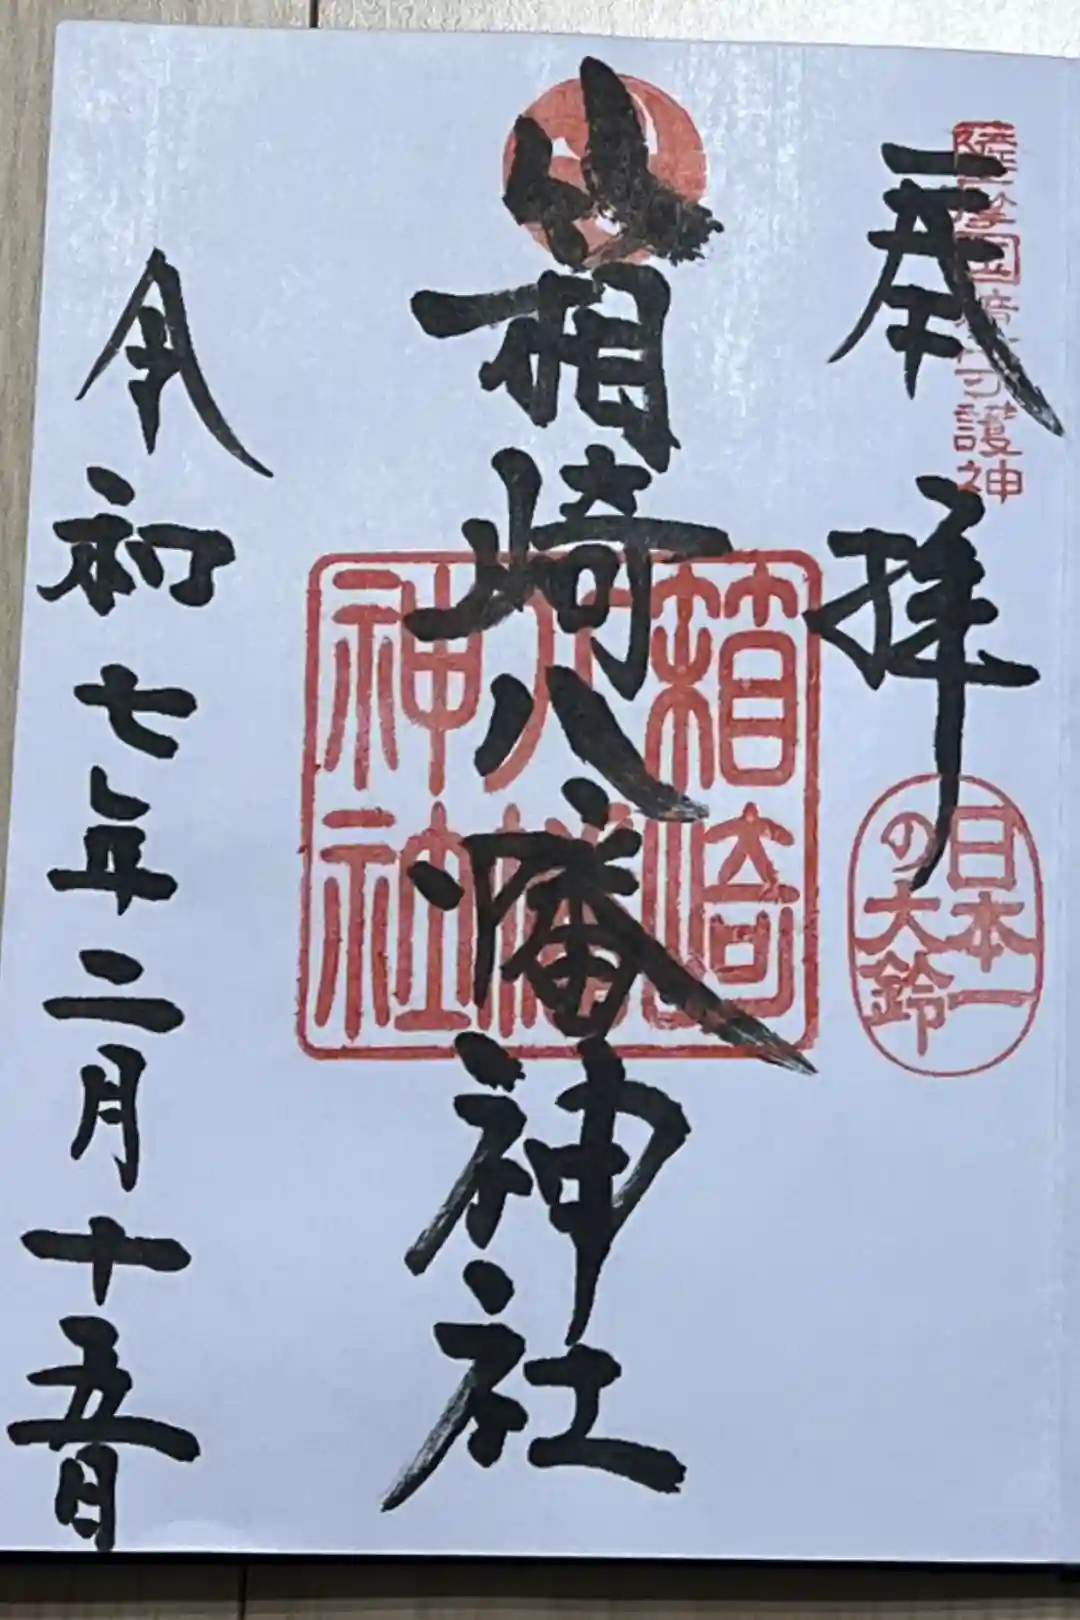 薩摩国守護神
奉拝
日本一
の大鈴
箱崎八幡神社
箱崎
八幡
神社
令和七年二月十五日